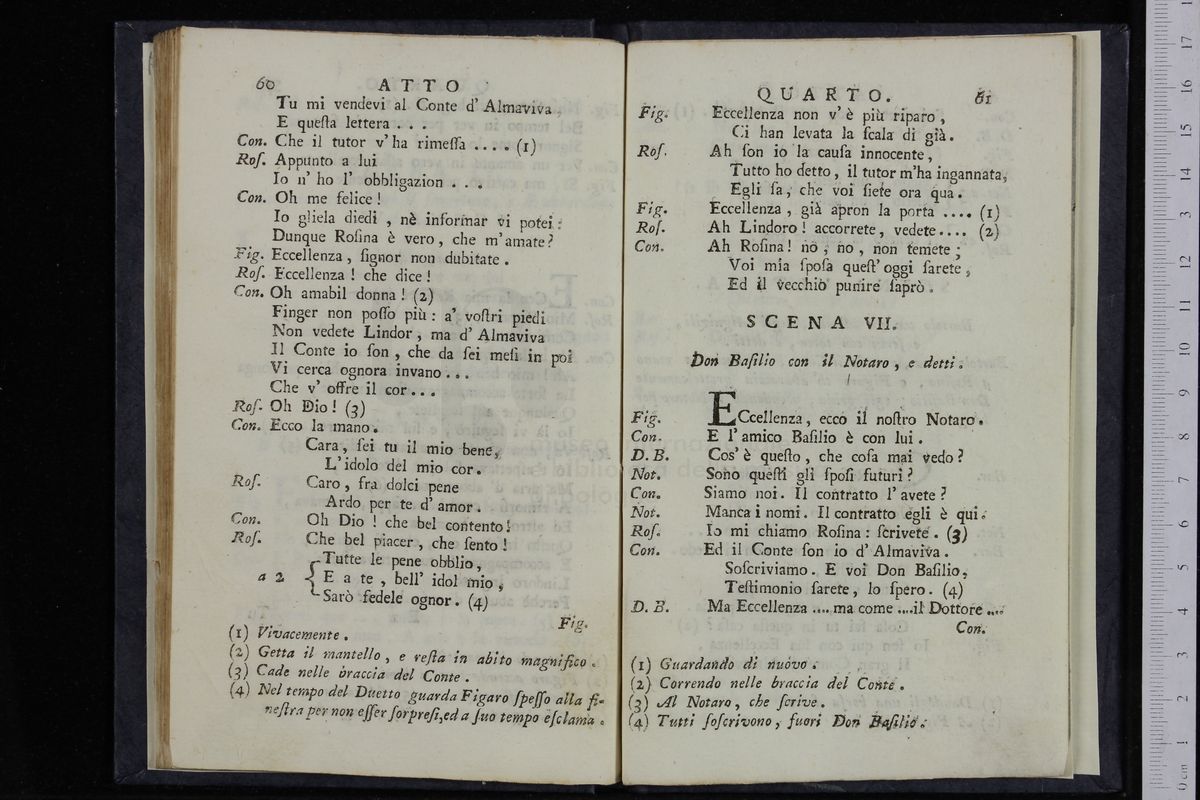 60 ATTO
Tu mi vendevi al Conte d' Almaviva,
E queſta lettera . . .
Con. Che il tutor v'ha rimeſſa .... (1)
Roſ. Appunto a lui
Io n' ho l' obbligazion . . .
Con. Oh me felice!
Io gliela diedi, nè informar vi potei:
Dunque Roſina è vero, che m'amate?
Fig. Eccellenza, ſignor non dubitate.
Roſ. Eccellenza! che dice!
Con. Oh amabil donna! (2)
Finger non poſſo più: a' voſtri piedi
Non vedete Lindor, ma d' Almaviva
Il Conte io ſon, che da ſei meſi in poi
Vi cerca ognora invano...
Che v' offre il cor...
Roſ. Oh Dio! (3)
Con. Ecco la mano.
Cara, ſei tu il mio bene,
L'idolo del mio cor.
Roſ. Caro, fra dolci pene
Ardo per te d' amor.
Con. Oh Dio! che bel contento!
Roſ. Che bel piacer, che ſento!
Tutte le pene obblio,
a 2 { E a te, bell' idol mio,
Sarò fedele ognor. (4)
Fig.
(1) Vivacemente.
(2) Getta il mantello, e reſta in abito magnifico.
(3) Cade nelle braccia del Conte.
(4) Nel tempo del Duetto guarda Figaro ſpeſſo alla fi-
neſtra per non eſſer ſorpreſi, ed a ſuo tempo eſclama.
QUARTO. 61
Fig. Eccellenza non v'è più riparo,
Ci han levata la ſcala di già.
Roſ. Ah ſon io la cauſa innocente,
Tutto ho detto, il tutor m'ha ingannata,
Egli ſa, che voi ſiete ora quà.
Fig. Eccellenza, già apron la porta .... (1)
Roſ. Ah Lindoro! accorrete, vedete.... (2)
Con. Ah Roſina! nò, nò, non temete;
Voi mia ſpoſa queſt' oggi ſarete,
Ed il vecchio punire ſaprò.
SCENA VII.
Don Baſilio con il Notaro, e detti.
Fig. ECcellenza, ecco il noſtro Notaro.
Con. E l'amico Baſilio è con lui.
D. B. Cos' è queſto, che coſa mai vedo?
Not. Sono queſti gli ſpoſi futuri?
Con. Siamo noi. Il contratto l' avete?
Not. Manca i nomi. Il contratto egli è qui.
Roſ. Io mi chiamo Roſina: ſcrivete. (3)
Con. Ed il Conte ſon io d' Almaviva.
Soſcriviamo. E voi Don Baſilio,
Teſtimonio ſarete, lo ſpero. (4)
D. B. Ma Eccellenza .... ma come .... il Dottore ....
Con.
(1) Guardando di nuovo.
(2) Correndo nelle braccia del Conte.
(3) Al Notaro, che ſcrive.
(4) Tutti ſoſcrivono, fuori Don Baſilio.